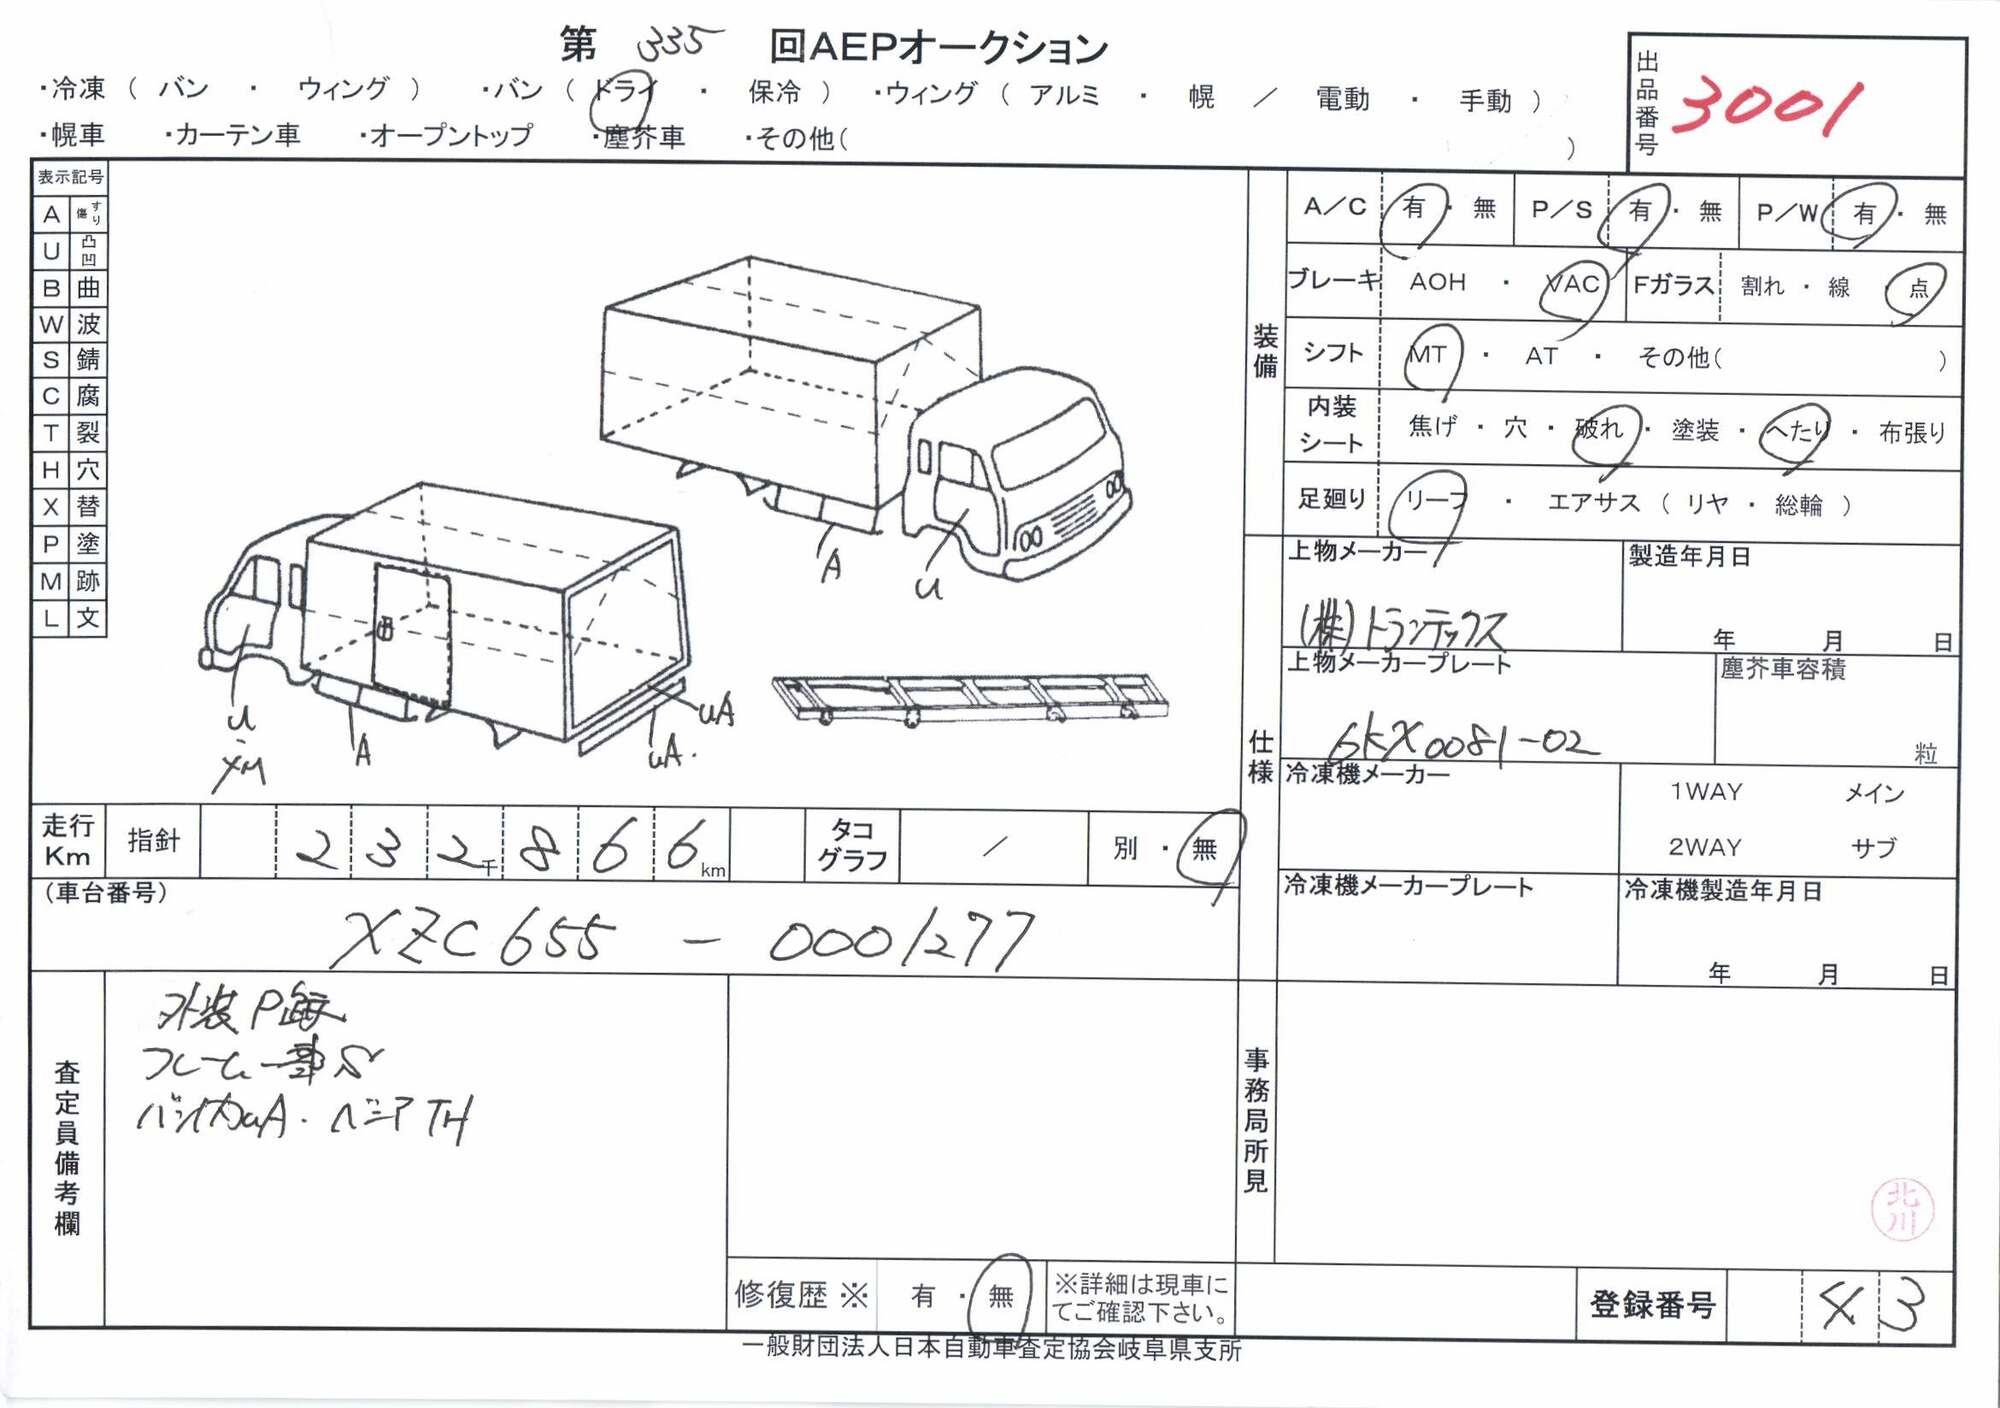 第 335 回AEPオークション
・冷凍 ( バン ・ ウィング ) ・バン ( ドライ ・ 保冷 ) ・ウィング ( アルミ ・ 幌 / 電動 ・ 手動 )
・幌車 ・カーテン車 ・オープントップ ・塵芥車 ・その他( )
出品番号 3001
表示記号
A すり傷
U 凸凹
B 曲
W 波
S 錆
C 腐
T 裂
H 穴
X 替
P 塗
M 跡
L 文
A
U
U
・
XM
A
UA
UA.
装備
A/C 有 ・ 無 P/S 有 ・ 無 P/W 有 ・ 無
ブレーキ AOH ・ VAC Fガラス 割れ ・ 線 ・ 点
シフト MT ・ AT ・ その他( )
内装シート 焦げ ・ 穴 ・ 破れ ・ 塗装 ・ へたり ・ 布張り
足廻り リーフ ・ エアサス ( リヤ ・ 総輪 )
仕様
上物メーカー 製造年月日
(株)トランテックス 年 月 日
上物メーカープレート 塵芥車容積
6KX0081-02 粒
冷凍機メーカー 1WAY メイン
2WAY サブ
冷凍機メーカープレート 冷凍機製造年月日
年 月 日
走行Km 指針 2 3 2千 8 6 6 km タコグラフ / 別 ・ 無
(車台番号)
XZC655 - 0001277
査定員備考欄
外装P
フレーム一部S
バンイカUA. ベニアTH
事務局所見
北川
修復歴※ 有 ・ 無 ※詳細は現車にてご確認下さい。
登録番号 43
一般財団法人日本自動車査定協会岐阜県支所